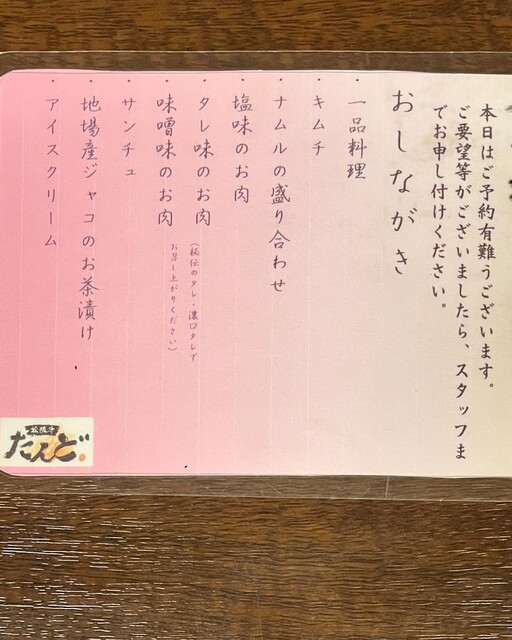 本日はご予約有難うございます。
ご要望等がございましたら、スタッフま
でお申し付けください。
おしながき
・一品料理
・キムチ
・ナムルの盛り合わせ
・塩味のお肉
・タレ味のお肉
(秘伝のタレ・濃口タレで
お召し上がりください)
・味噌味のお肉
・サンチュ
・地場産ジャコのお茶漬け
・アイスクリーム
松阪牛
たんど。